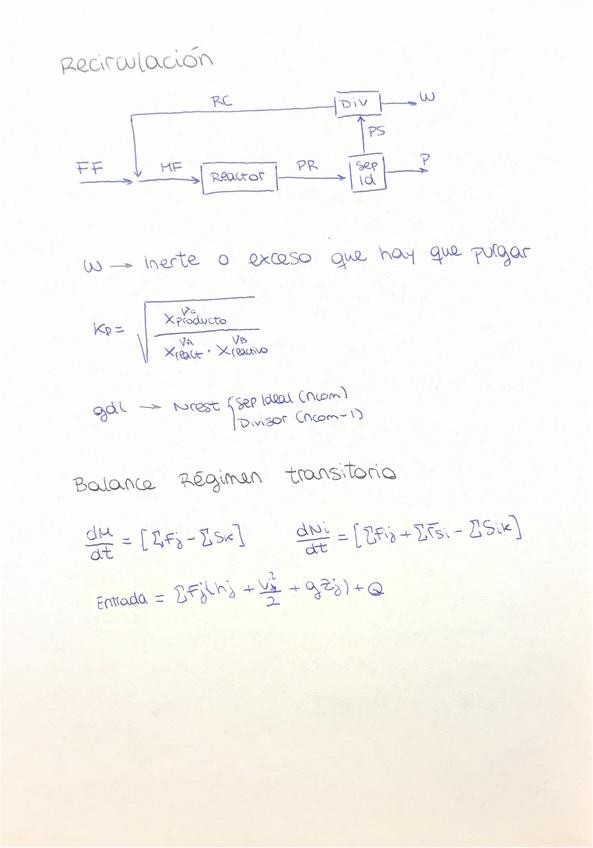 Recirculación
RC
Div
W
PS
FF
MF
Reactor
PR
Sep
id
P
W → Inerte o exceso que hay que purgar
Kp = √ Xproducto^νc / Xreact^νA · Xreactivo^νB
gdl → Nrest { Sep Ideal (ncom)
Divisor (ncom-1)
Balance Régimen transitorio
dM/dt = [ΣFj - ΣSk] dNi/dt = [ΣFij + Σrsi - ΣSik]
Entrada = ΣFj(hj + Vj²/2 + gzj) + Q